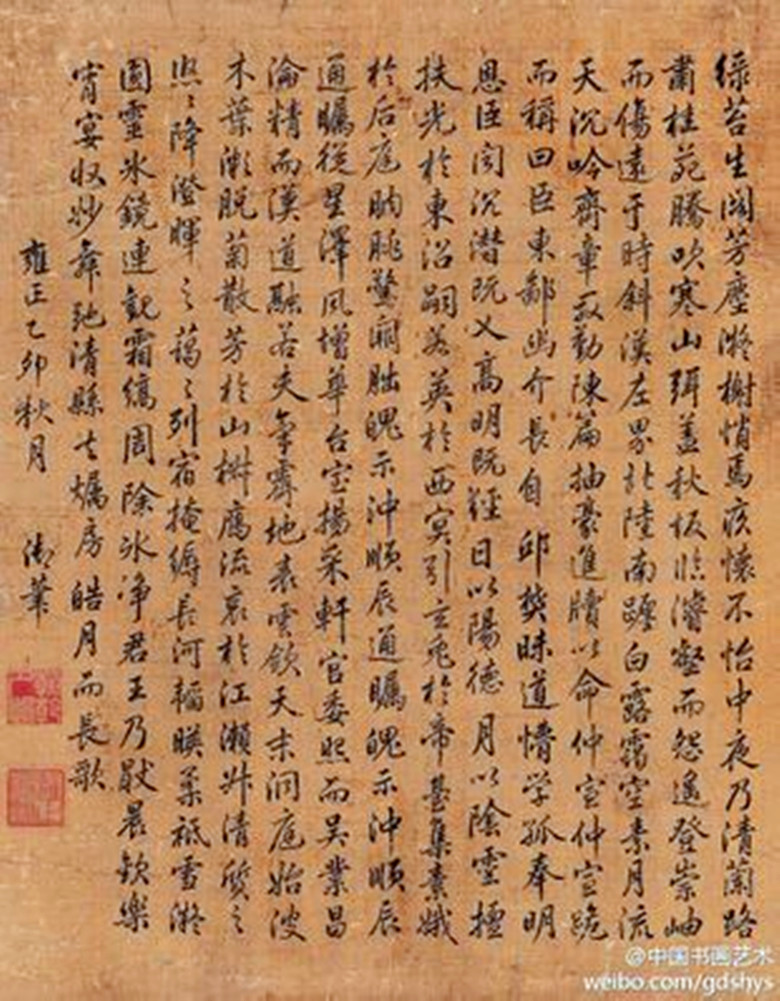 綠苔生閣芳塵凝榭悄焉疚懷不怡中夜乃清蘭路
肅桂苑騰吹寒山弭蓋秋坂臨濬壑而怨遙登崇岫
而傷遠于時斜漢左界北陸南躔白露靄空素月流
天沉吟齊章殷勤陳篇抽豪進牘以命仲宣仲宣跪
而稱曰臣東鄙幽介長自邱樊昧道懵學孤奉明
恩臣聞沉潛既义高明既經日以陽德月以陰靈擅
扶光於東沼嗣若英於西冥引玄兎於帝臺集素娥
於后庭朒脁警闕朏魄示沖順辰通矚魄示沖順辰
通矚從星澤風增華台室揚采軒宫委照而吴業昌
淪精而漢道融若夫氣霽地表雲斂天末洞庭始波
木葉漸脱菊散芳於山椒鴈流哀於江瀨升清質之
悠〻降澄暉之藹〻列宿掩縟長河韜映柔祇雪凝
圓靈冰鏡連觀霜縞周除冰净君王乃猒晨歡樂
宵宴收妙舞弛清縣去燭房皓月而長歌
雍正乙卯秋月 御筆
@中国书画艺术
weibo.com/gdshys